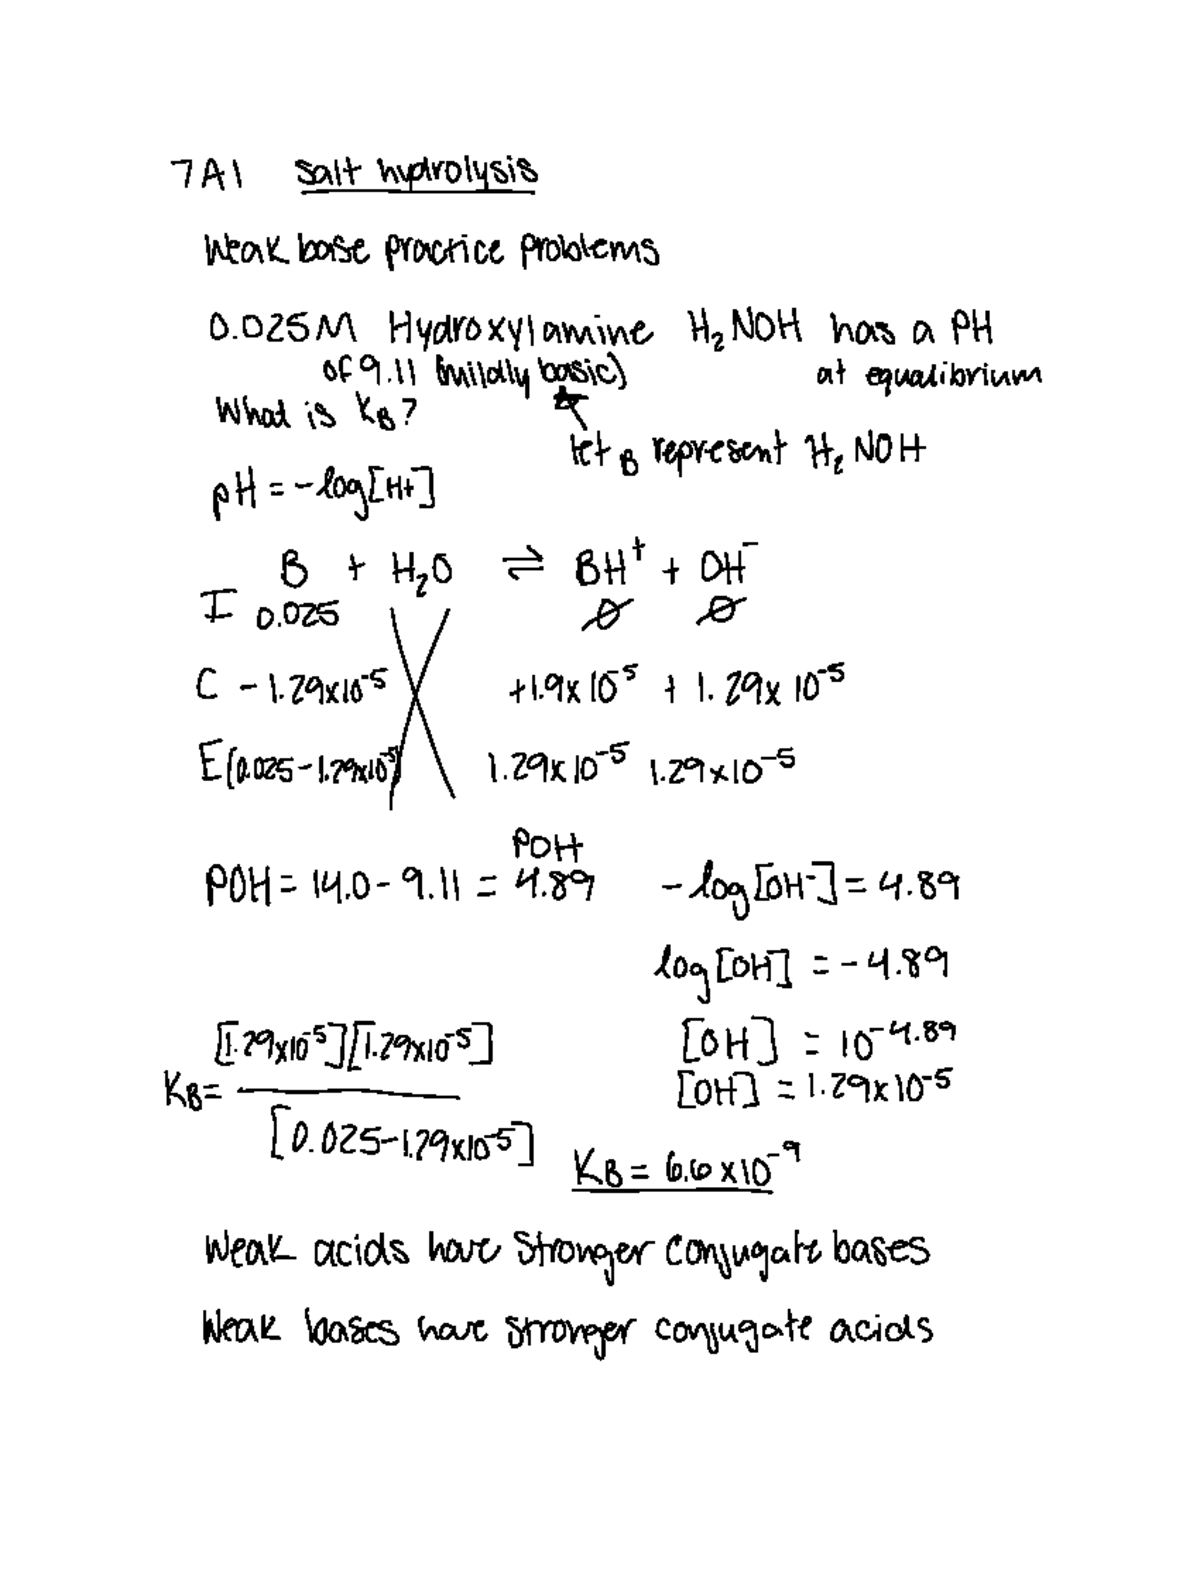 7A1 Salt hydrolysis
Weak base practice problems
0.025M Hydroxylamine H₂NOH has a PH
of 9.11 (mildly basic) at equalibrium
What is KB?
let B represent H₂NOH
pH = -log[H+]
B + H₂O ⇌ BH⁺ + OH⁻
I 0.025 ∅ ∅
C -1.29x10⁻⁵ +1.9x10⁻⁵ + 1.29x10⁻⁵
E (0.025-1.29x10⁻⁵) 1.29x10⁻⁵ 1.29x10⁻⁵
POH
POH = 14.0 - 9.11 = 4.89 -log[OH⁻] = 4.89
log[OH] = -4.89
[OH] = 10⁻⁴·⁸⁹
[1.29x10⁻⁵][1.29x10⁻⁵]
KB=
[OH] = 1.29x10⁻⁵
[0.025-1.29x10⁻⁵]
KB = 6.6x10⁻⁹
Weak acids have stronger conjugate bases
Weak bases have stronger conjugate acids